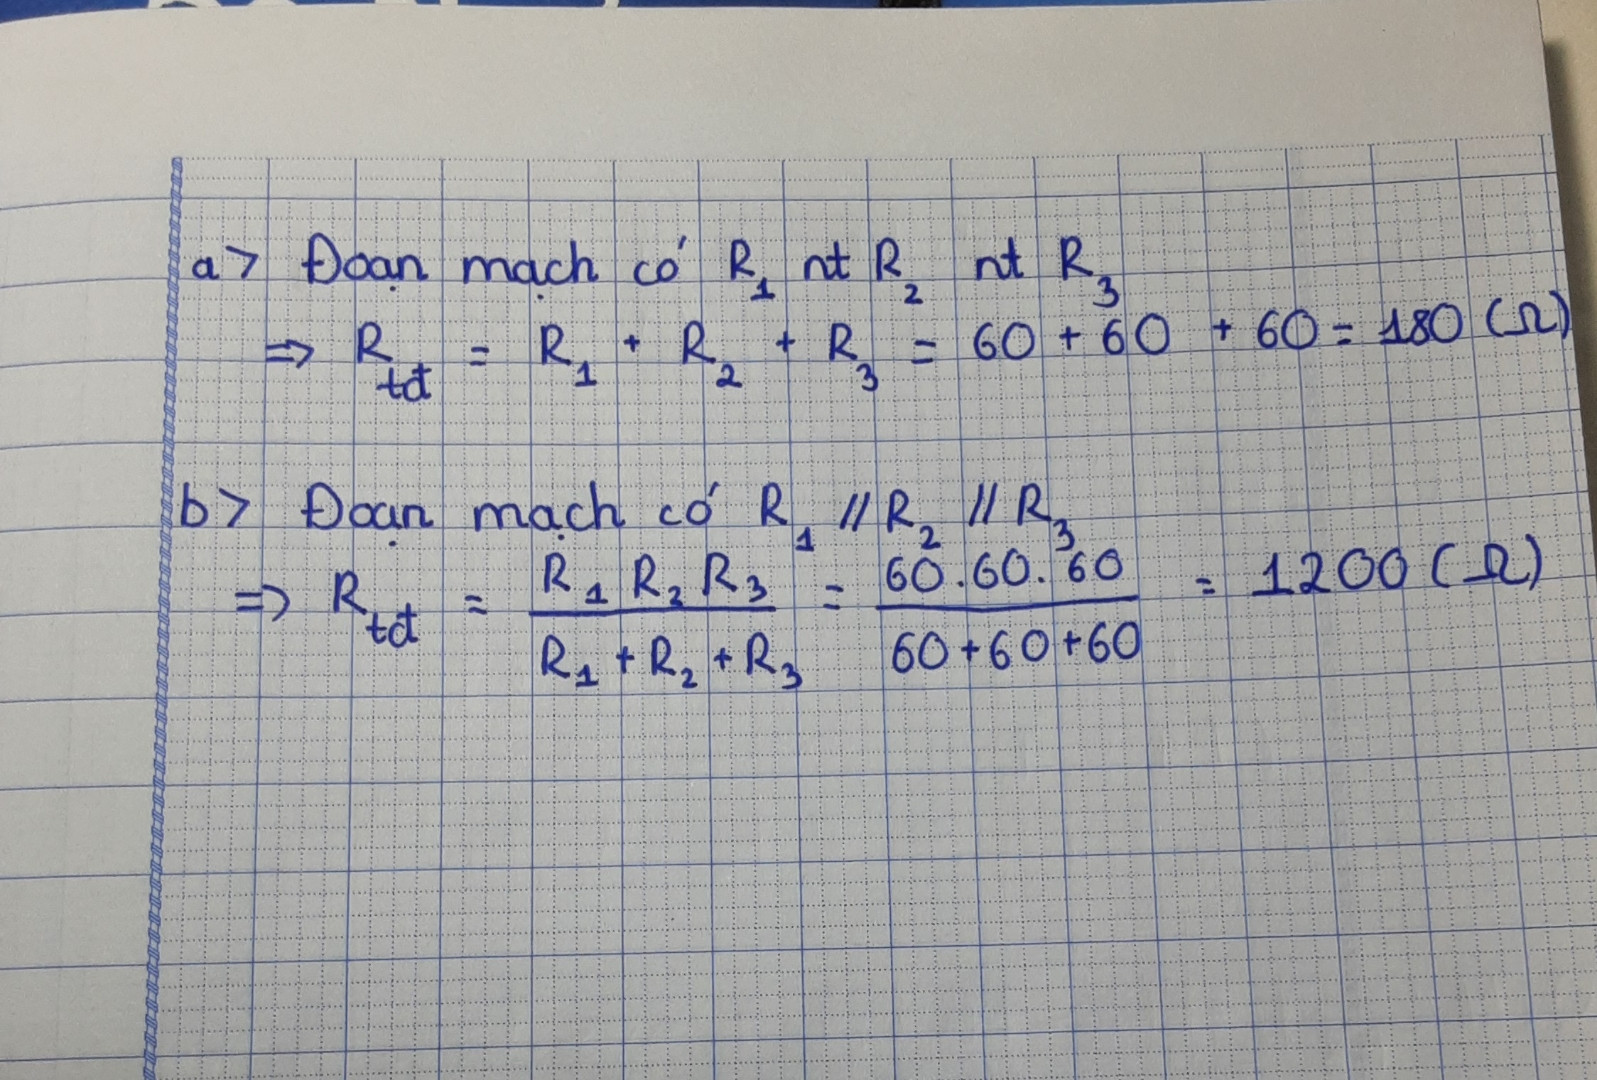 a> Đoạn mạch có R₁ nt R₂ nt R₃
=> R_tđ = R₁ + R₂ + R₃ = 60 + 60 + 60 = 180 (Ω)
b> Đoạn mạch có R₁ // R₂ // R₃
=> R_tđ = (R₁ R₂ R₃)/(R₁ + R₂ + R₃) = (60.60.60)/(60+60+60) = 1200 (Ω)